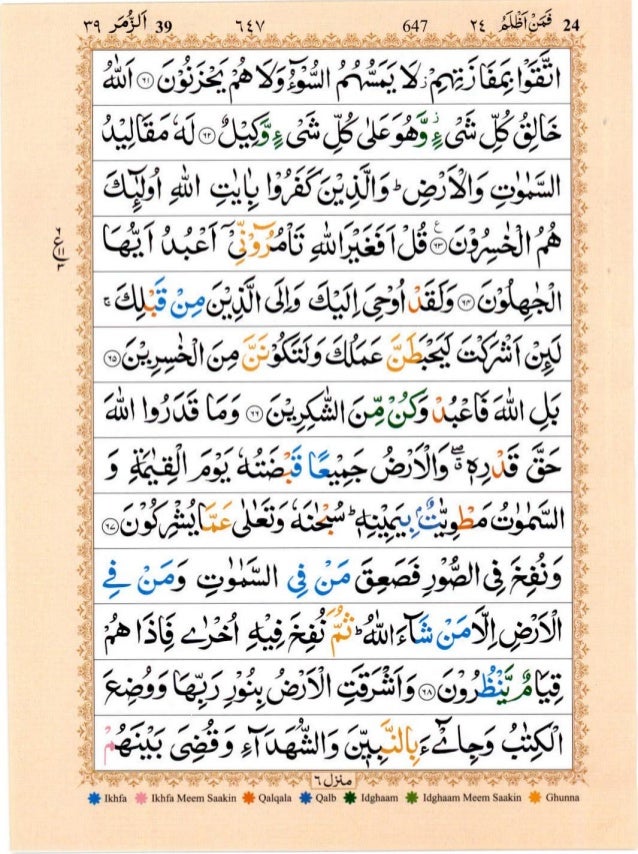 ٣٩ اَلزُّمَر 39 ٦٤٧ 647 ٢٤ فَمَنْ اَظْلَمُ 24
اتَّقَوْا بِمَفَازَتِهِمْ ز لَا يَمَسُّهُمُ السُّوْٓءُ وَلَا هُمْ يَحْزَنُوْنَ ٦١ اَللّٰهُ
خَالِقُ كُلِّ شَیْءٍ ز وَّهُوَ عَلٰی كُلِّ شَیْءٍ وَّكِيْلٌ ٦٢ لَهٗ مَقَالِيْدُ
السَّمٰوٰتِ وَالْاَرْضِ ط وَالَّذِيْنَ كَفَرُوْا بِاٰيٰتِ اللّٰهِ اُولٰٓئِكَ
هُمُ الْخٰسِرُوْنَ ٦٣ ع قُلْ اَفَغَيْرَ اللّٰهِ تَاْمُرُوْٓنِّیْٓ اَعْبُدُ اَيُّهَا
الْجٰهِلُوْنَ ٦٤ وَلَقَدْ اُوْحِیَ اِلَيْكَ وَاِلَی الَّذِيْنَ مِنْ قَبْلِكَ ج
لَئِنْ اَشْرَكْتَ لَيَحْبَطَنَّ عَمَلُكَ وَلَتَكُوْنَنَّ مِنَ الْخٰسِرِيْنَ ٦٥
بَلِ اللّٰهَ فَاعْبُدْ وَكُنْ مِّنَ الشّٰكِرِيْنَ ٦٦ وَمَا قَدَرُوا اللّٰهَ
حَقَّ قَدْرِهٖ ق صلے وَالْاَرْضُ جَمِيْعًا قَبْضَتُهٗ يَوْمَ الْقِيٰمَةِ وَ
السَّمٰوٰتُ مَطْوِيّٰتٌۢ بِيَمِيْنِهٖ ط سُبْحٰنَهٗ وَتَعٰلٰی عَمَّا يُشْرِكُوْنَ ٦٧
وَنُفِخَ فِی الصُّوْرِ فَصَعِقَ مَنْ فِی السَّمٰوٰتِ وَمَنْ فِی
الْاَرْضِ اِلَّا مَنْ شَآءَ اللّٰهُ ط ثُمَّ نُفِخَ فِيْهِ اُخْرٰی فَاِذَا هُمْ
قِيَامٌ يَّنْظُرُوْنَ ٦٨ وَاَشْرَقَتِ الْاَرْضُ بِنُوْرِ رَبِّهَا وَوُضِعَ
الْكِتٰبُ وَجِایْٓءَ بِالنَّبِيّٖنَ وَالشُّهَدَآءِ وَقُضِیَ بَيْنَهُمْ
منزل ٦
Ikhfa Ikhfa Meem Saakin Qalqala Qalb Idghaam Idghaam Meem Saakin Ghunna